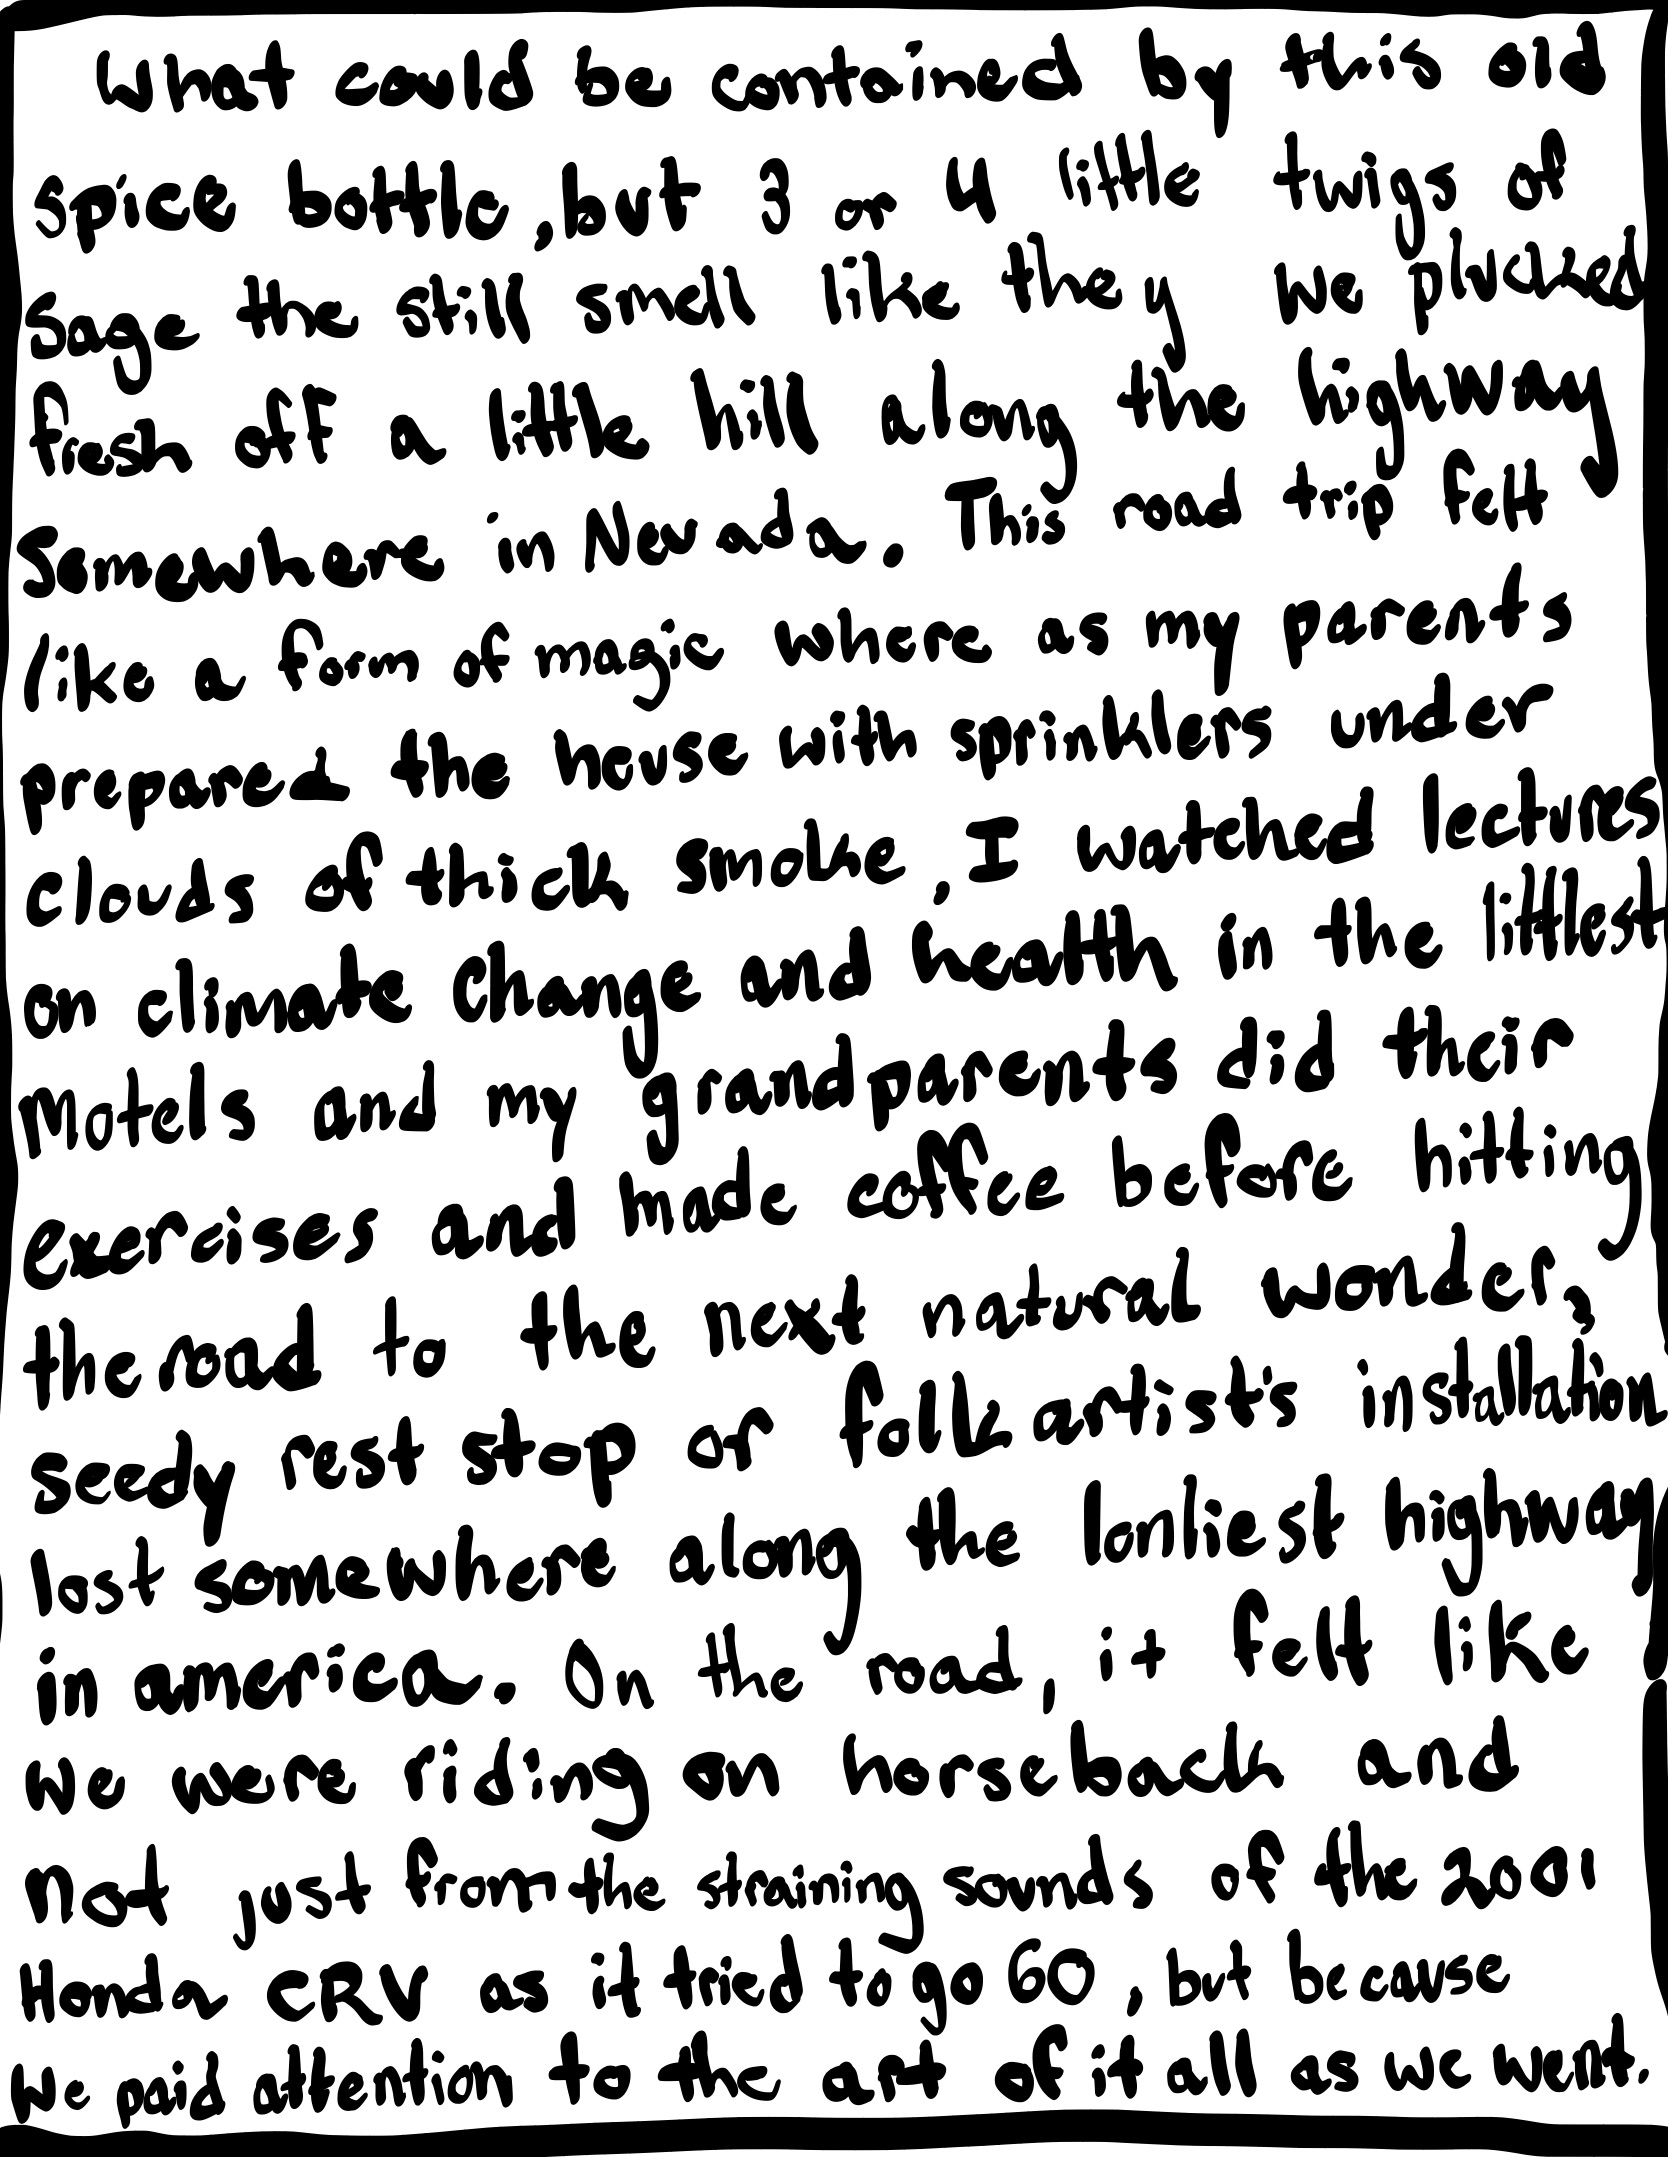 What could be contained by this old
spice bottle, but 3 or 4 little twigs of
Sage the still smell like they we plucked
fresh off a little hill along the highway
Somewhere in Nevada. This road trip felt
like a form of magic where as my parents
prepared the house with sprinklers under
clouds of thick smoke, I watched lectures
on climate change and health in the littlest
Motels and my grandparents did their
exercises and made coffee before hitting
the road to the next natural wonder,
seedy rest stop or folk artist's installation
lost somewhere along the lonliest highway
in america. On the road, it felt like
we were riding on horseback and
not just from the straining sounds of the 2001
Honda CRV as it tried to go 60, but because
We paid attention to the art of it all as we went.